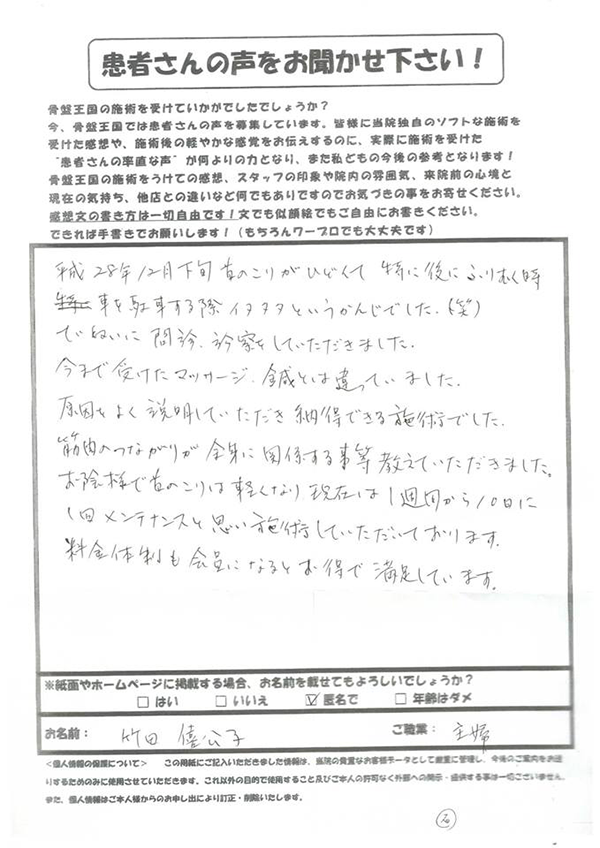 患者さんの声をお聞かせ下さい！
骨盤王国の施術を受けていかがでしたでしょうか？
今、骨盤王国では患者さんの声を募集しています。皆様に当院独自のソフトな施術を
受けた感想や、施術後の軽やかな感覚をお伝えするのに、実際に施術を受けた
"患者さんの率直な声"が何よりの力となり、また私どもの今後の参考となります！
骨盤王国の施術をうけての感想、スタッフの印象や院内の雰囲気、来院前の心境と
現在の気持ち、他店との違いなど何でもありですのでお気づきの事をお寄せください。
感想文の書き方は一切自由です！文でも似顔絵でもご自由にお書きください。
できれば手書きでお願いします！（もちろんワープロでも大丈夫です）
平成28年12月下旬首のこりがひどくて 特に後にふりむく時
車を駐車する際イタタタというかんじでした。（笑）
ていねいに問診、診察をしていただきました。
今まで受けたマッサージ、鍼とは違っていました。
原因をよく説明していただき納得できる施術でした。
筋肉のつながりが全身に関係する事等教えていただきました。
お陰様で首のこりは軽くなり現在は1週間から10日に
1回メンテナンスと思い施術していただいております。
料金体制も会員になるとお得で満足しています。
※紙面やホームページに掲載する場合、お名前を載せてもよろしいでしょうか？
□はい □いいえ ☑匿名で □年齢はダメ
お名前： 竹田 僖公子 ご職業： 主婦
＜個人情報の保護について＞ この用紙にご記入いただきました情報は、当院の貴重なお客様データとして厳重に管理し、今後のご案内をお送
りするためのみに使用させていただきます。これ以外の目的で使用すること及びご本人の許可なく外部への開示・提供する事は一切ございません。
また、個人情報はご本人様からのお申し出により訂正・削除いたします。